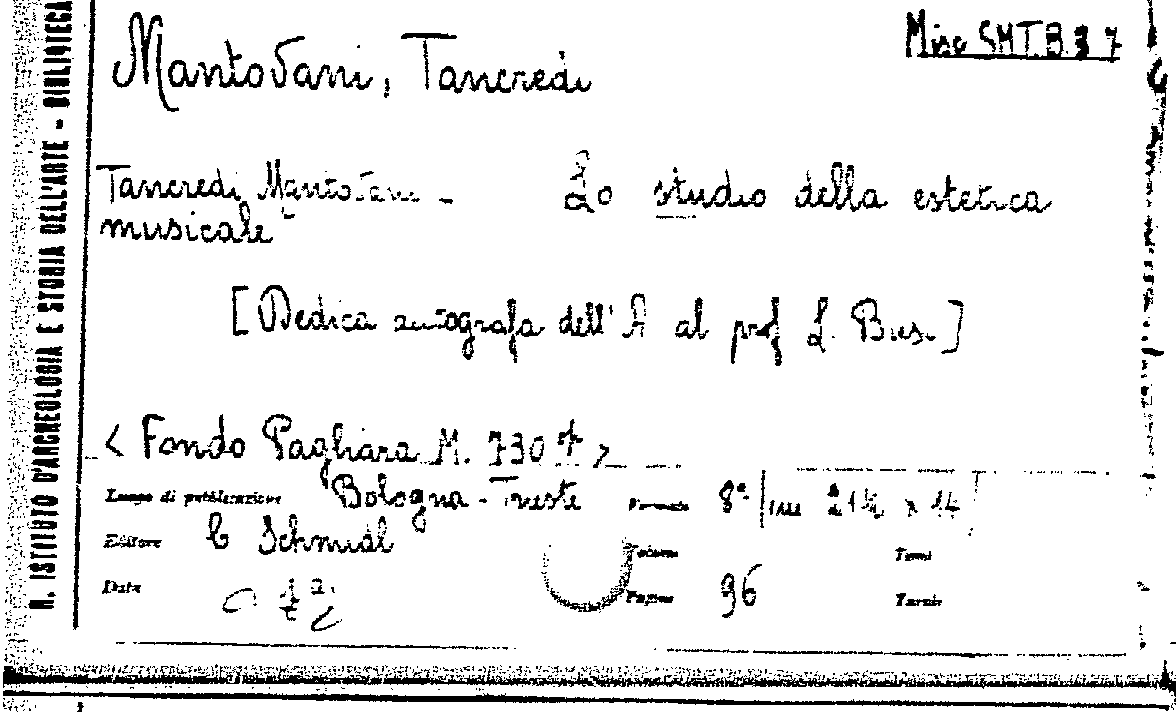 R. ISTITUTO D'ARCHEOLOGIA E STORIA DELL'ARTE - BIBLIOTECA
Misc SMT.B.37
Mantovani, Tancredi
Tancredi Mantovani - Lo studio della estetica
musicale
[Dedica autografa dell'A al prof L. Busi]
< Fondo Pagliara M. 730 >
Luogo di pubblicazione Bologna - Trieste Formato 8°
Editore C Schmidl Volume Tomi
Data Pagine 96 Tavole